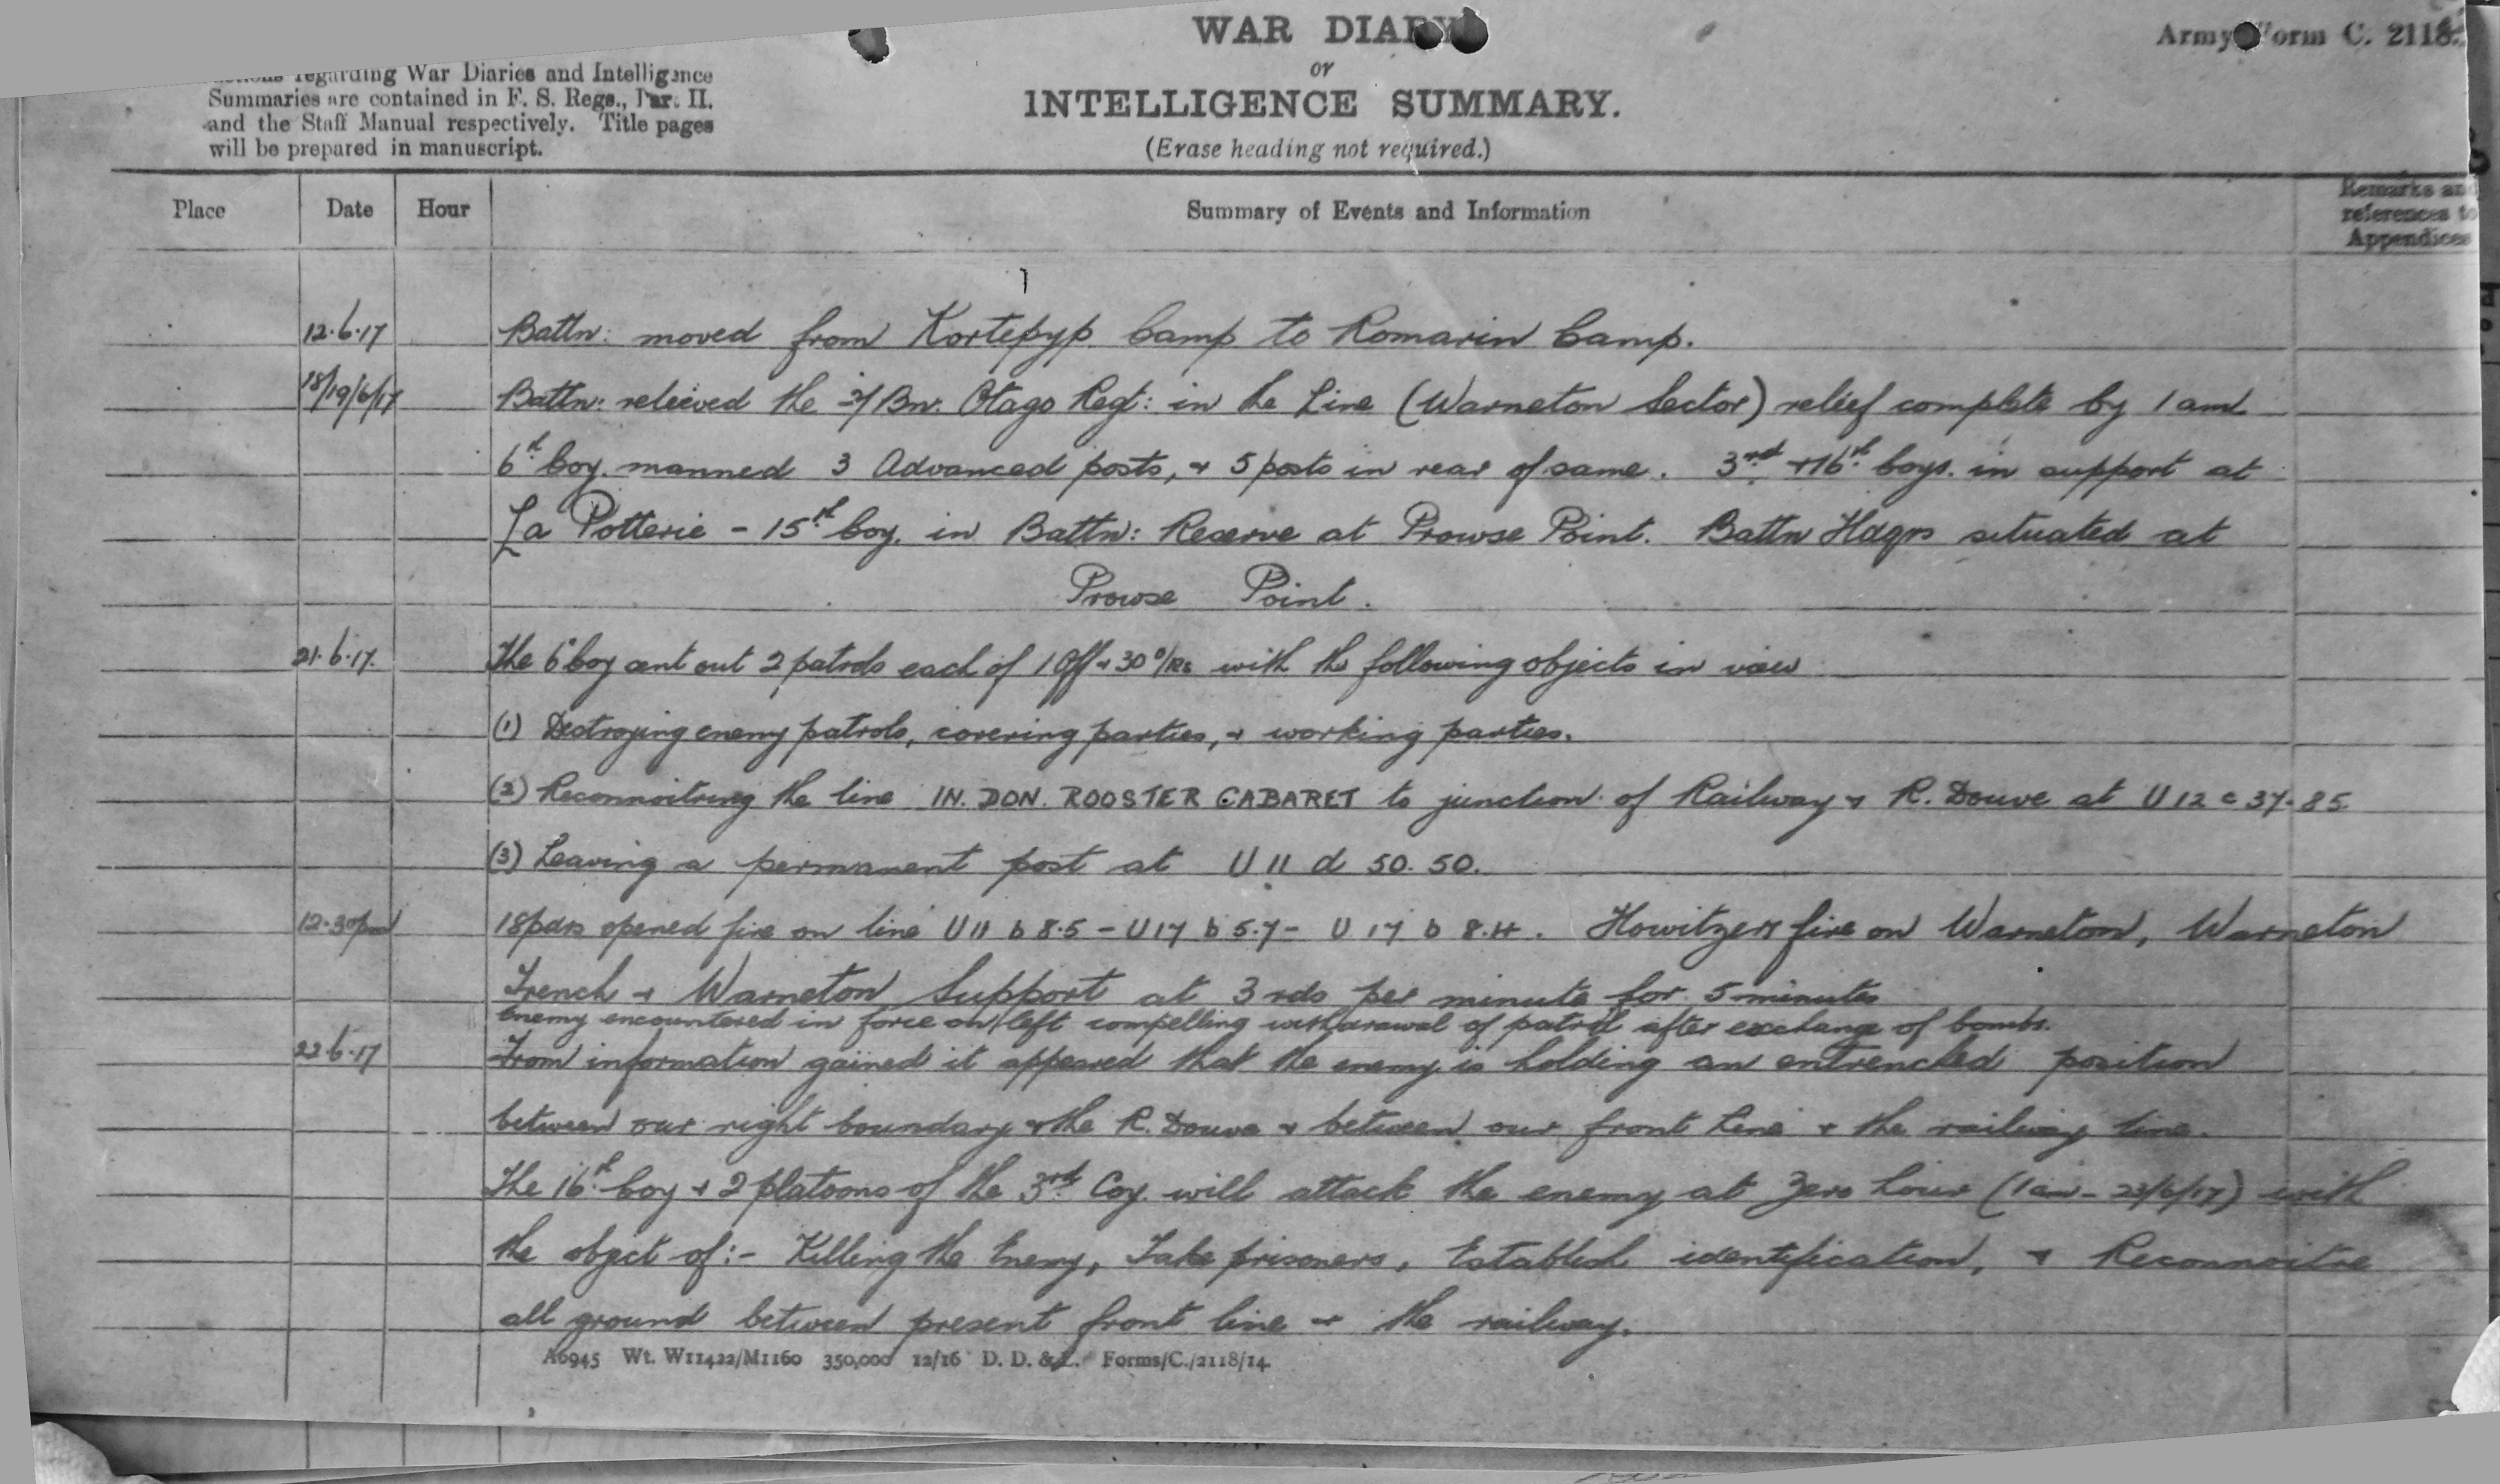 WAR DIARY
Army Form C. 2118.
or
INTELLIGENCE SUMMARY.
(Erase heading not required.)
regarding War Diaries and Intelligence
Summaries are contained in F. S. Regs., Par. II.
and the Staff Manual respectively. Title pages
will be prepared in manuscript.
Place Date Hour Summary of Events and Information Remarks and references to Appendices
12.6.17 Battn: moved from Kortepyp Camp to Romarin Camp.
18/19/6/17 Battn: releived the 2/Bn. Otago Regt: in the Line (Warneton Sector) relief complete by 1 am
6th Coy. manned 3 Advanced posts, + 5 posts in rear of same. 3rd + 16th Coys. in support at
La Potterie - 15th Coy. in Battn: Reserve at Prowse Point. Battn Hdqrs situated at
Prowse Point.
21.6.17. The 6th Coy sent out 2 patrols each of 1 Off + 30 O/Rs with the following objects in view
(1) Destroying enemy patrols, covering parties, + working parties.
(2) Reconnoitring the line IN. DON. ROOSTER CABARET to junction of Railway + R. Douve at U 12 c 37.85
(3) Leaving a permanent post at U 11 d 50.50.
12.30pm 18pdrs opened fire on line U 11 b 8.5 - U 17 b 5.7 - U 17 b 8.4. Howitzers fire on Warneton, Warneton
Trench + Warneton Support at 3 rds per minute for 5 minutes
Enemy encountered in force on left compelling withdrawal of patrol after exchange of bombs.
22.6.17 From information gained it appeared that the enemy is holding an entrenched position
between our right boundary + the R. Douve + between our front line + the railway line.
The 16th Coy + 2 platoons of the 3rd Coy. will attack the enemy at Zero hour (1 am - 23/6/17) with
the object of:- Killing the Enemy, Take prisoners, Establish identification, + Reconnoitre
all ground between present front line + the railway.
A6945 Wt. W11422/M1160 350,000 12/16 D. D. & L. Forms/C./2118/14.